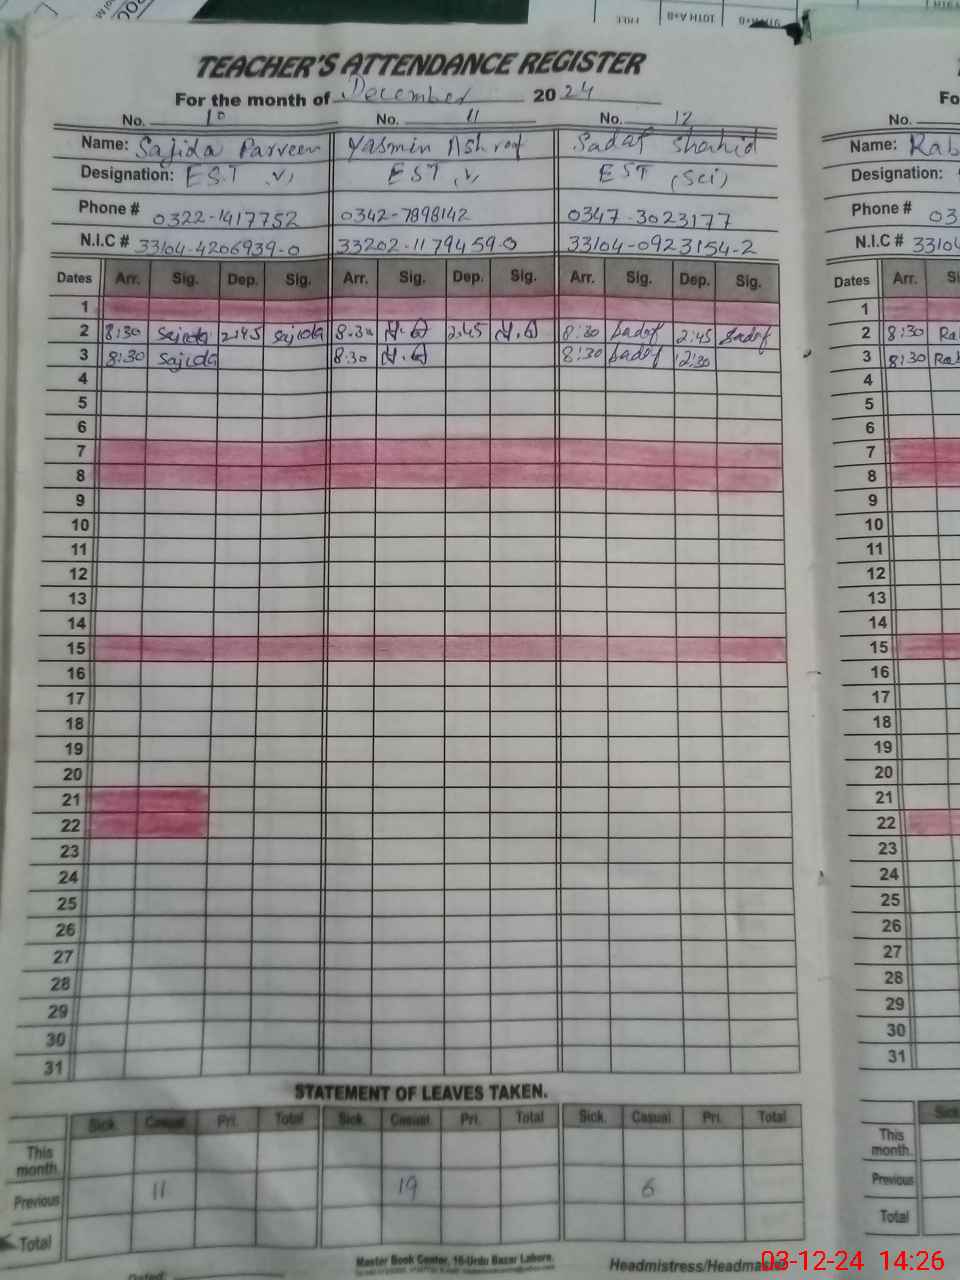 10TH A+B
TEACHER'S ATTENDANCE REGISTER
For the month of December 2024
No. 10 No. 11 No. 12 No.
Name: Sajida Parveen Yasmin Ashraf Sadaf Shahid Name: Rab
Designation: EST EST EST (Sci) Designation:
Phone # 0322-1417752 0342-7898142 0347-3023177 Phone # 03
N.I.C # 33104-4206939-0 33202-1179459-0 33104-0923154-2 N.I.C # 3310
Dates Arr. Sig. Dep. Sig. Arr. Sig. Dep. Sig. Arr. Sig. Dep. Sig. Dates Arr.
1 1
2 8:30 Sajida 2:45 Sajida 8:30 2:45 8:30 Sadaf 2:45 Sadaf 2 8:30
3 8:30 Sajida 8:30 8:30 Sadaf 12:30 3 8:30
4 4
5 5
6 6
7 7
8 8
9 9
10 10
11 11
12 12
13 13
14 14
15 15
16 16
17 17
18 18
19 19
20 20
21 21
22 22
23 23
24 24
25 25
26 26
27 27
28 28
29 29
30 30
31 31
STATEMENT OF LEAVES TAKEN.
Sick. Casual Pri. Total Sick. Casual Pri. Total Sick. Casual. Pri. Total Sick
This month. This month.
Previous 11 19 6 Previous
Total Total
Master Book Center, 16-Urdu Bazar Lahore.
Dated Headmistress/Headmaster
03-12-24 14:26